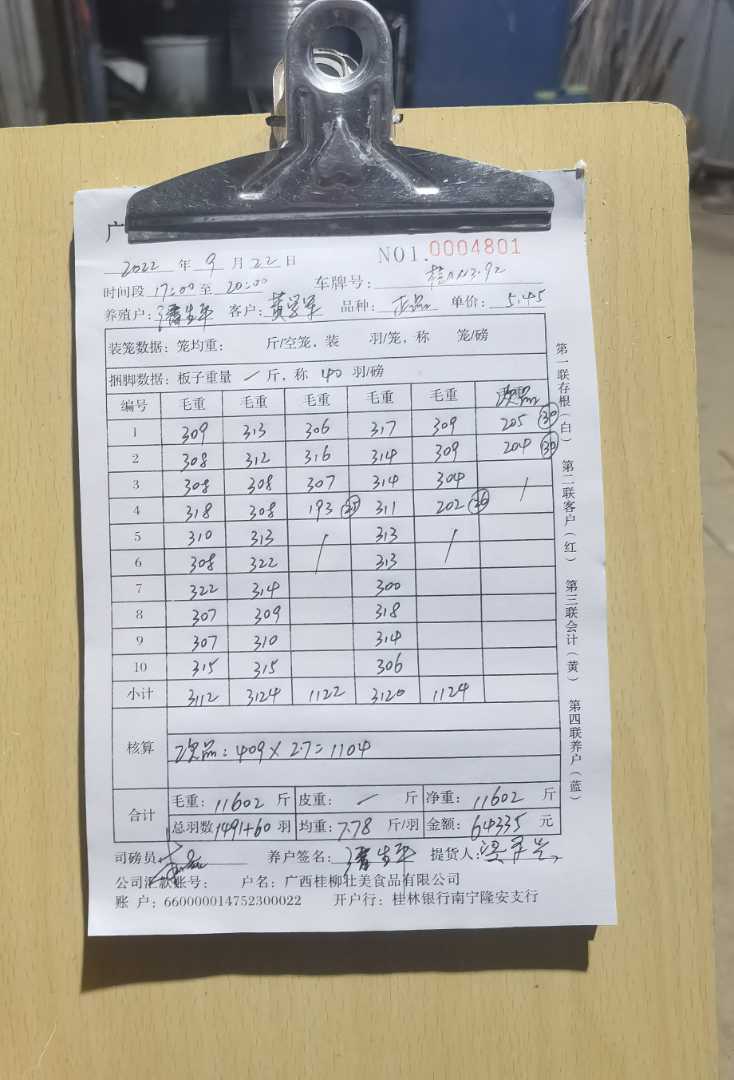 广
2022 年 9 月 22 日 NO1.0004801
时间段 17:00 至 20:00 车牌号:
养殖户: 客户: 黄 军 品种: 正品 单价: 5.45
装笼数据: 笼均重: 斤/空笼, 装 羽/笼, 称 笼/磅
捆脚数据: 板子重量 / 斤, 称 40 羽/磅
编号 毛重 毛重 毛重 毛重 毛重 次品
1 309 313 306 317 309 205 (30)
2 308 312 316 314 309 204 (30)
3 308 308 307 314 304 /
4 318 308 193 311 202
5 310 313 / 313 /
6 308 322 313
7 322 314 300
8 307 309 318
9 307 310 314
10 315 315 306
小计 3112 3124 1122 3120 1124
核算 次品: 409×2.7=1104
合计 毛重: 11602 斤 皮重: / 斤 净重: 11602 斤
总羽数 1491+60 羽 均重: 7.78 斤/羽 金额: 64335 元
司磅员: 养户签名: 提货人:
公司汇款账号: 户名: 广西桂柳壮美食品有限公司
账 户: 660000014752300022 开户行: 桂林银行南宁隆安支行
第一联存根(白) 第二联客户(红) 第三联会计(黄) 第四联养户(蓝)